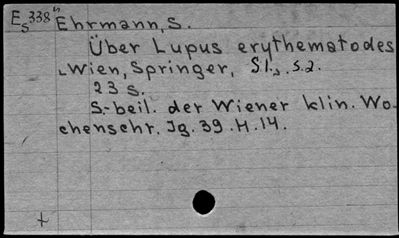 Es338h Ehrmann, S.
Über Lupus erythematodes
Wien, Springer, S.l., s.a.
23 s.
S.-beil. der Wiener klin. Wo-
chenschr. Jg. 39. H. 14.